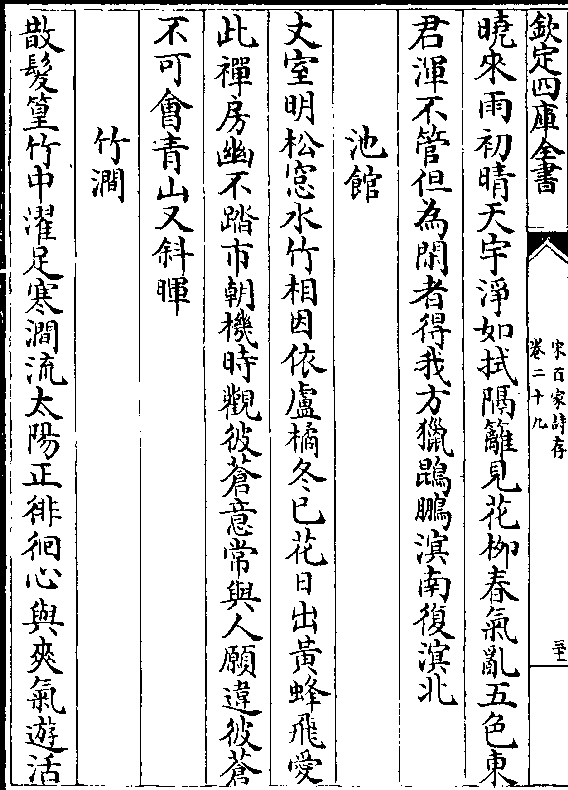 欽定四庫全書
宋百家詩存
卷二十九
曉來雨初晴天宇淨如拭隔籬見花柳春氣亂五色東
君渾不管但為閑者得我方獵鵾鵬溟南復溟北
池館
丈室明松窓水竹相因依盧橘冬已花日出黃蜂飛愛
此禪房幽不踏市朝機時觀彼蒼意常與人願違彼蒼
不可會青山又斜暉
竹澗
散髮篁竹中濯足寒澗流太陽正徘徊心與爽氣遊活